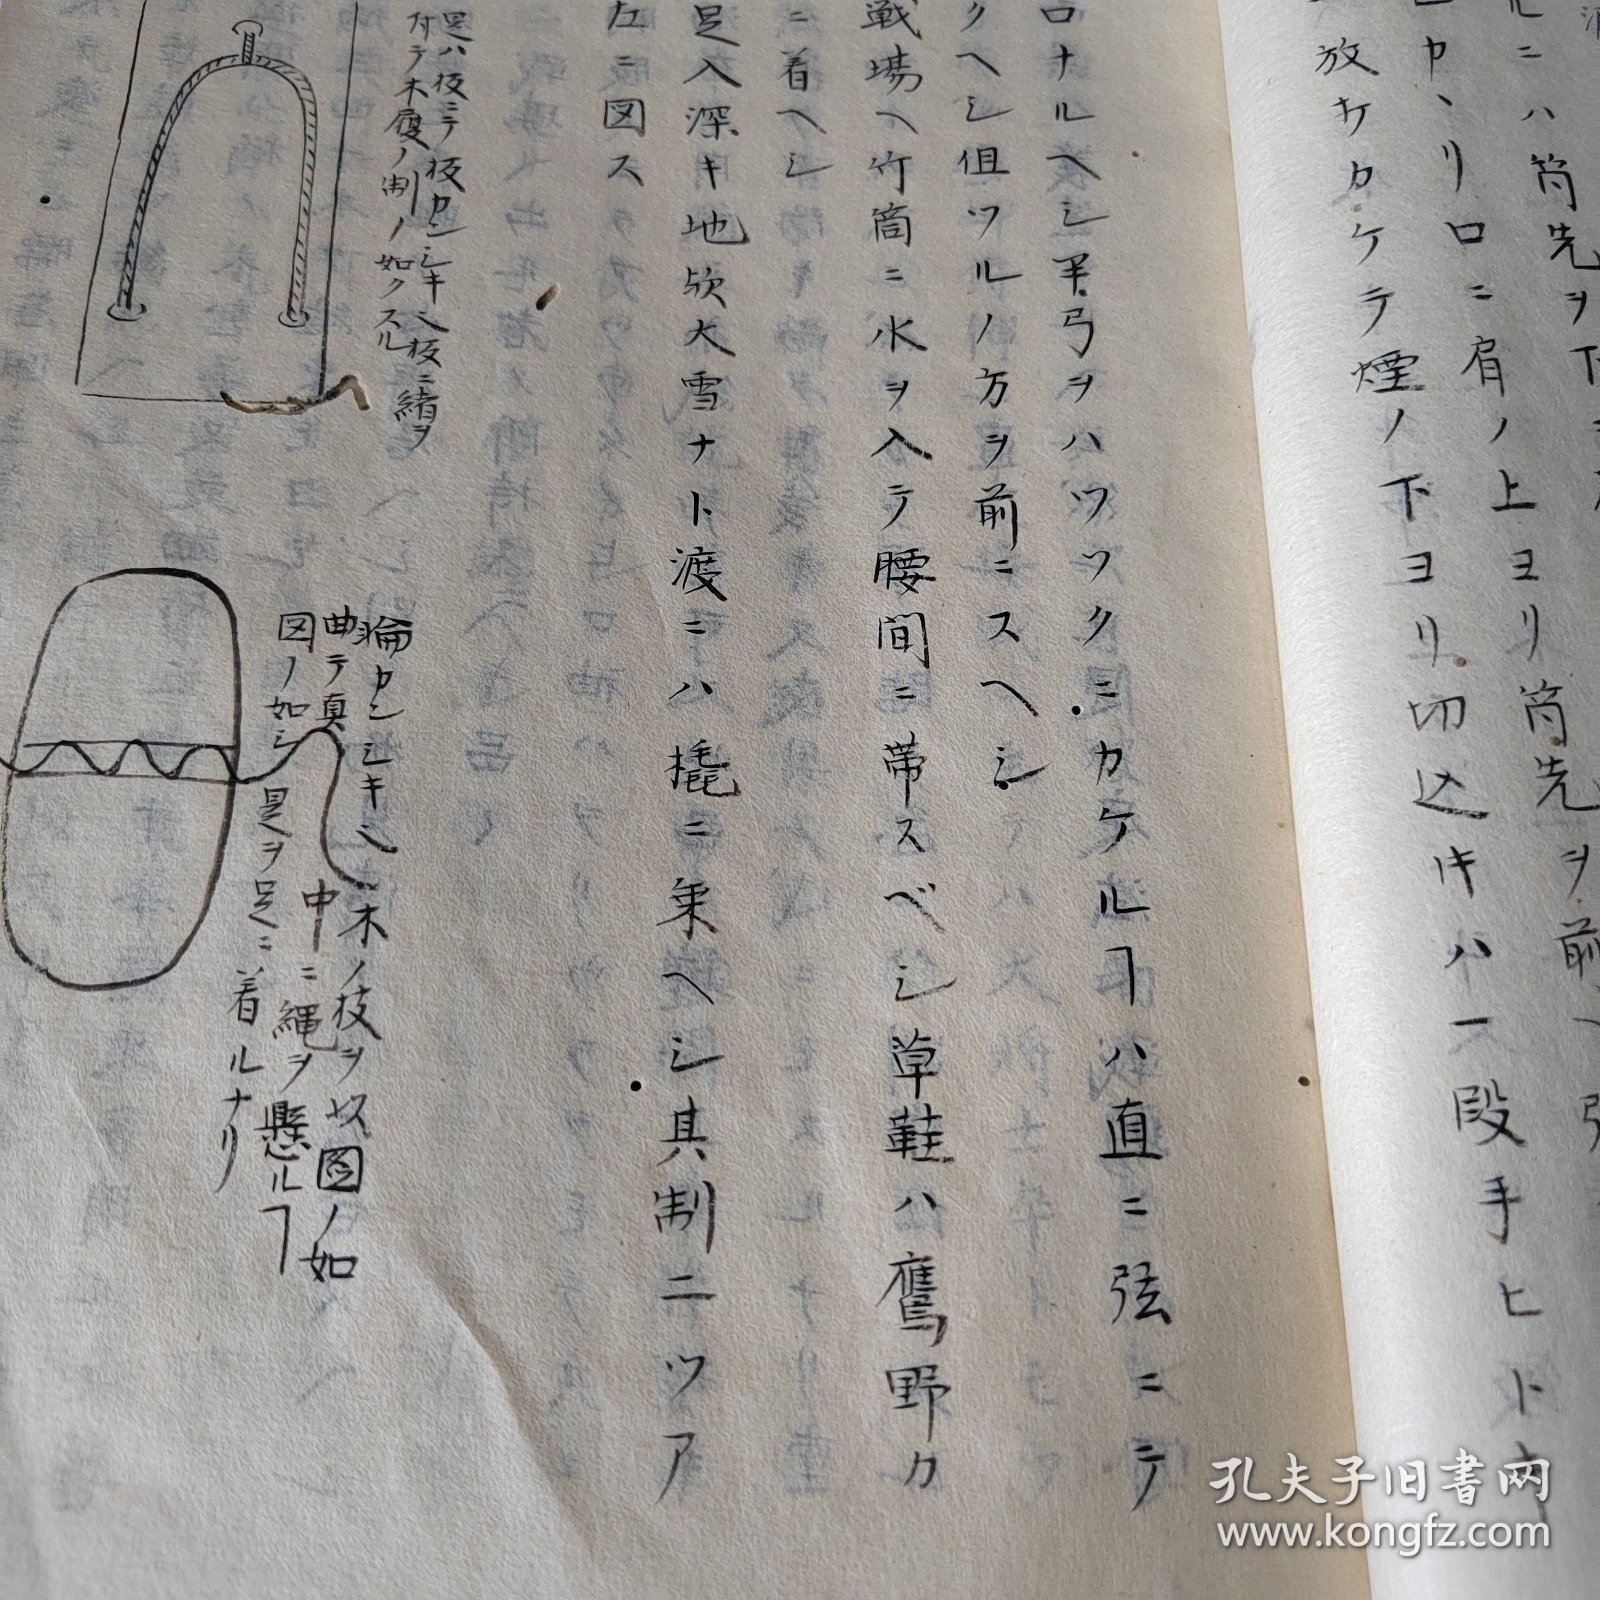 ルニハ筒先ヲ
上ヨリ筒先ヲ前ヘ
リロニ肩ノ上ヨリ
切込キハ一段手ヒト
放ケカケテ煙ノ下ヨリ
ロナルヘシ半弓ヲハツツクニカケルヿハ直ニ弦ニテ
クヘシ但ツルノ方ヲ前ニスヘシ
戦場ヘ竹筒ニ水ヲ入テ腰間ニ帯スベシ草鞋ハ鷹野カ
ニ着ヘシ
足入深キ地欤大雪ナト渡ニハ橇ニ乗ヘシ其制ニツア
左ニ図ス
是ハ板ニテ板カンシキ
板ニ緒ヲ
付テ木履ノ制ノ如クスル
カンシキ
木ノ枝ヲ以図ノ如
曲テ真中ニ縄ヲ懸ルヿ
図ノ如シ
是ヲ足ニ着ルナリ
孔夫子旧书网
www.kongfz.com